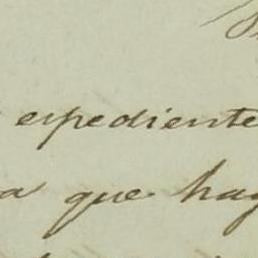 espediente
a que hag